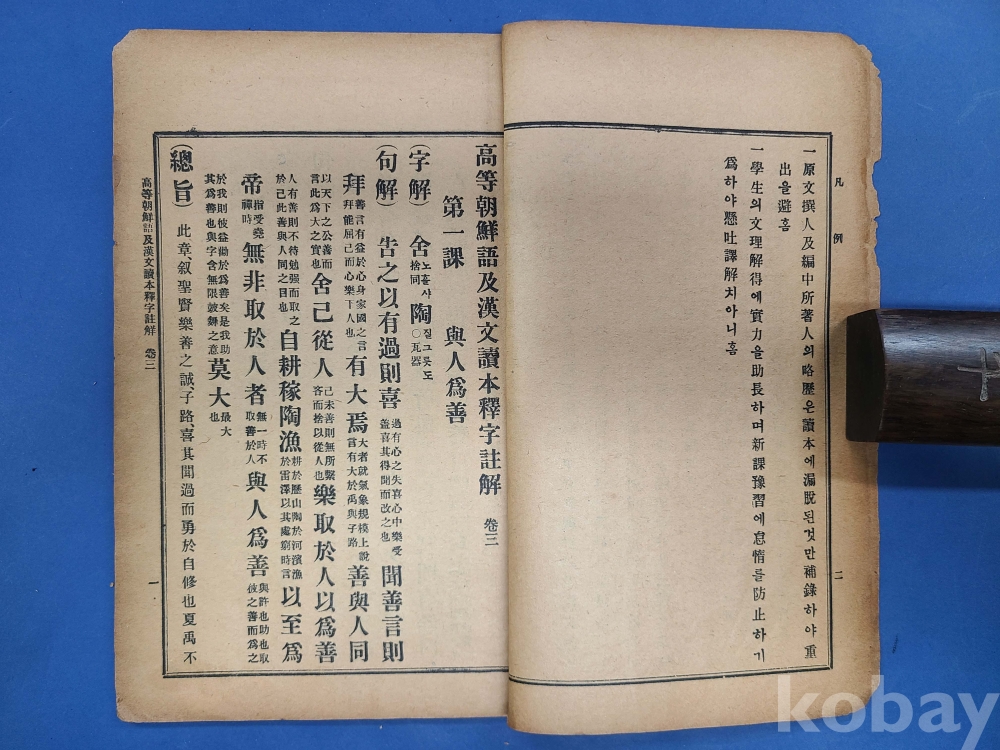 凡例 二
一 原文撰人及編中所著人의略歷은讀本에漏脫된것만補錄하야重
出을避홈
一 學生의文理解得에實力을助長하며新課豫習에怠惰를防止하기
爲하야懸吐譯解치아니홈
高等朝鮮語及漢文讀本釋字註解 卷三
第一課 與人爲善
(字解) 舍노흘샤捨同 陶질그릇도〇瓦器
(句解) 告之以有過則喜過有心之失喜心中樂受蓋喜其得聞而改之也 聞善言則
拜善言有益於心身家國之言拜能屈己而心樂下人也 有大焉大者就氣象規模上說言有大於禹與子路 善與人同
以天下之公善而言此爲大之實也 舍己從人己未善則無所繫吝而捨以從人也 樂取於人以爲善
人有善則不待勉强而取之於己此善與人同之目也 自耕稼陶漁耕於歷山陶於河濱漁於雷澤以其處窮時言 以至爲
帝指受堯禪時 無非取於人者無一時不取善於人 與人爲善與許也助也取彼之善而爲之
於我則彼益勸於爲善矣是我助其爲善也與字含無限鼓舞之意 莫大最大也
(總旨) 此章、叙聖賢樂善之誠、子路、喜其聞過而勇於自修也夏禹不
高等朝鮮語及漢文讀本釋字註解 卷三 一
kobay